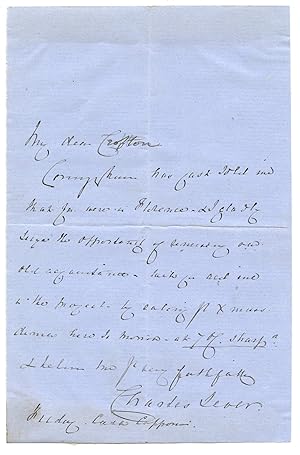 My dear Crofton
Conyngham has just told me
that you were in Florence & I gladly
seize the opportunity of renewing our
old acquaintance – will you aid me
in the project – by eating yr Xmas
dinner here to morrow – at 7 O'C. sharp
& believe me yrs very faithfully
Charles Lever.
Friday. Casa Capponi.